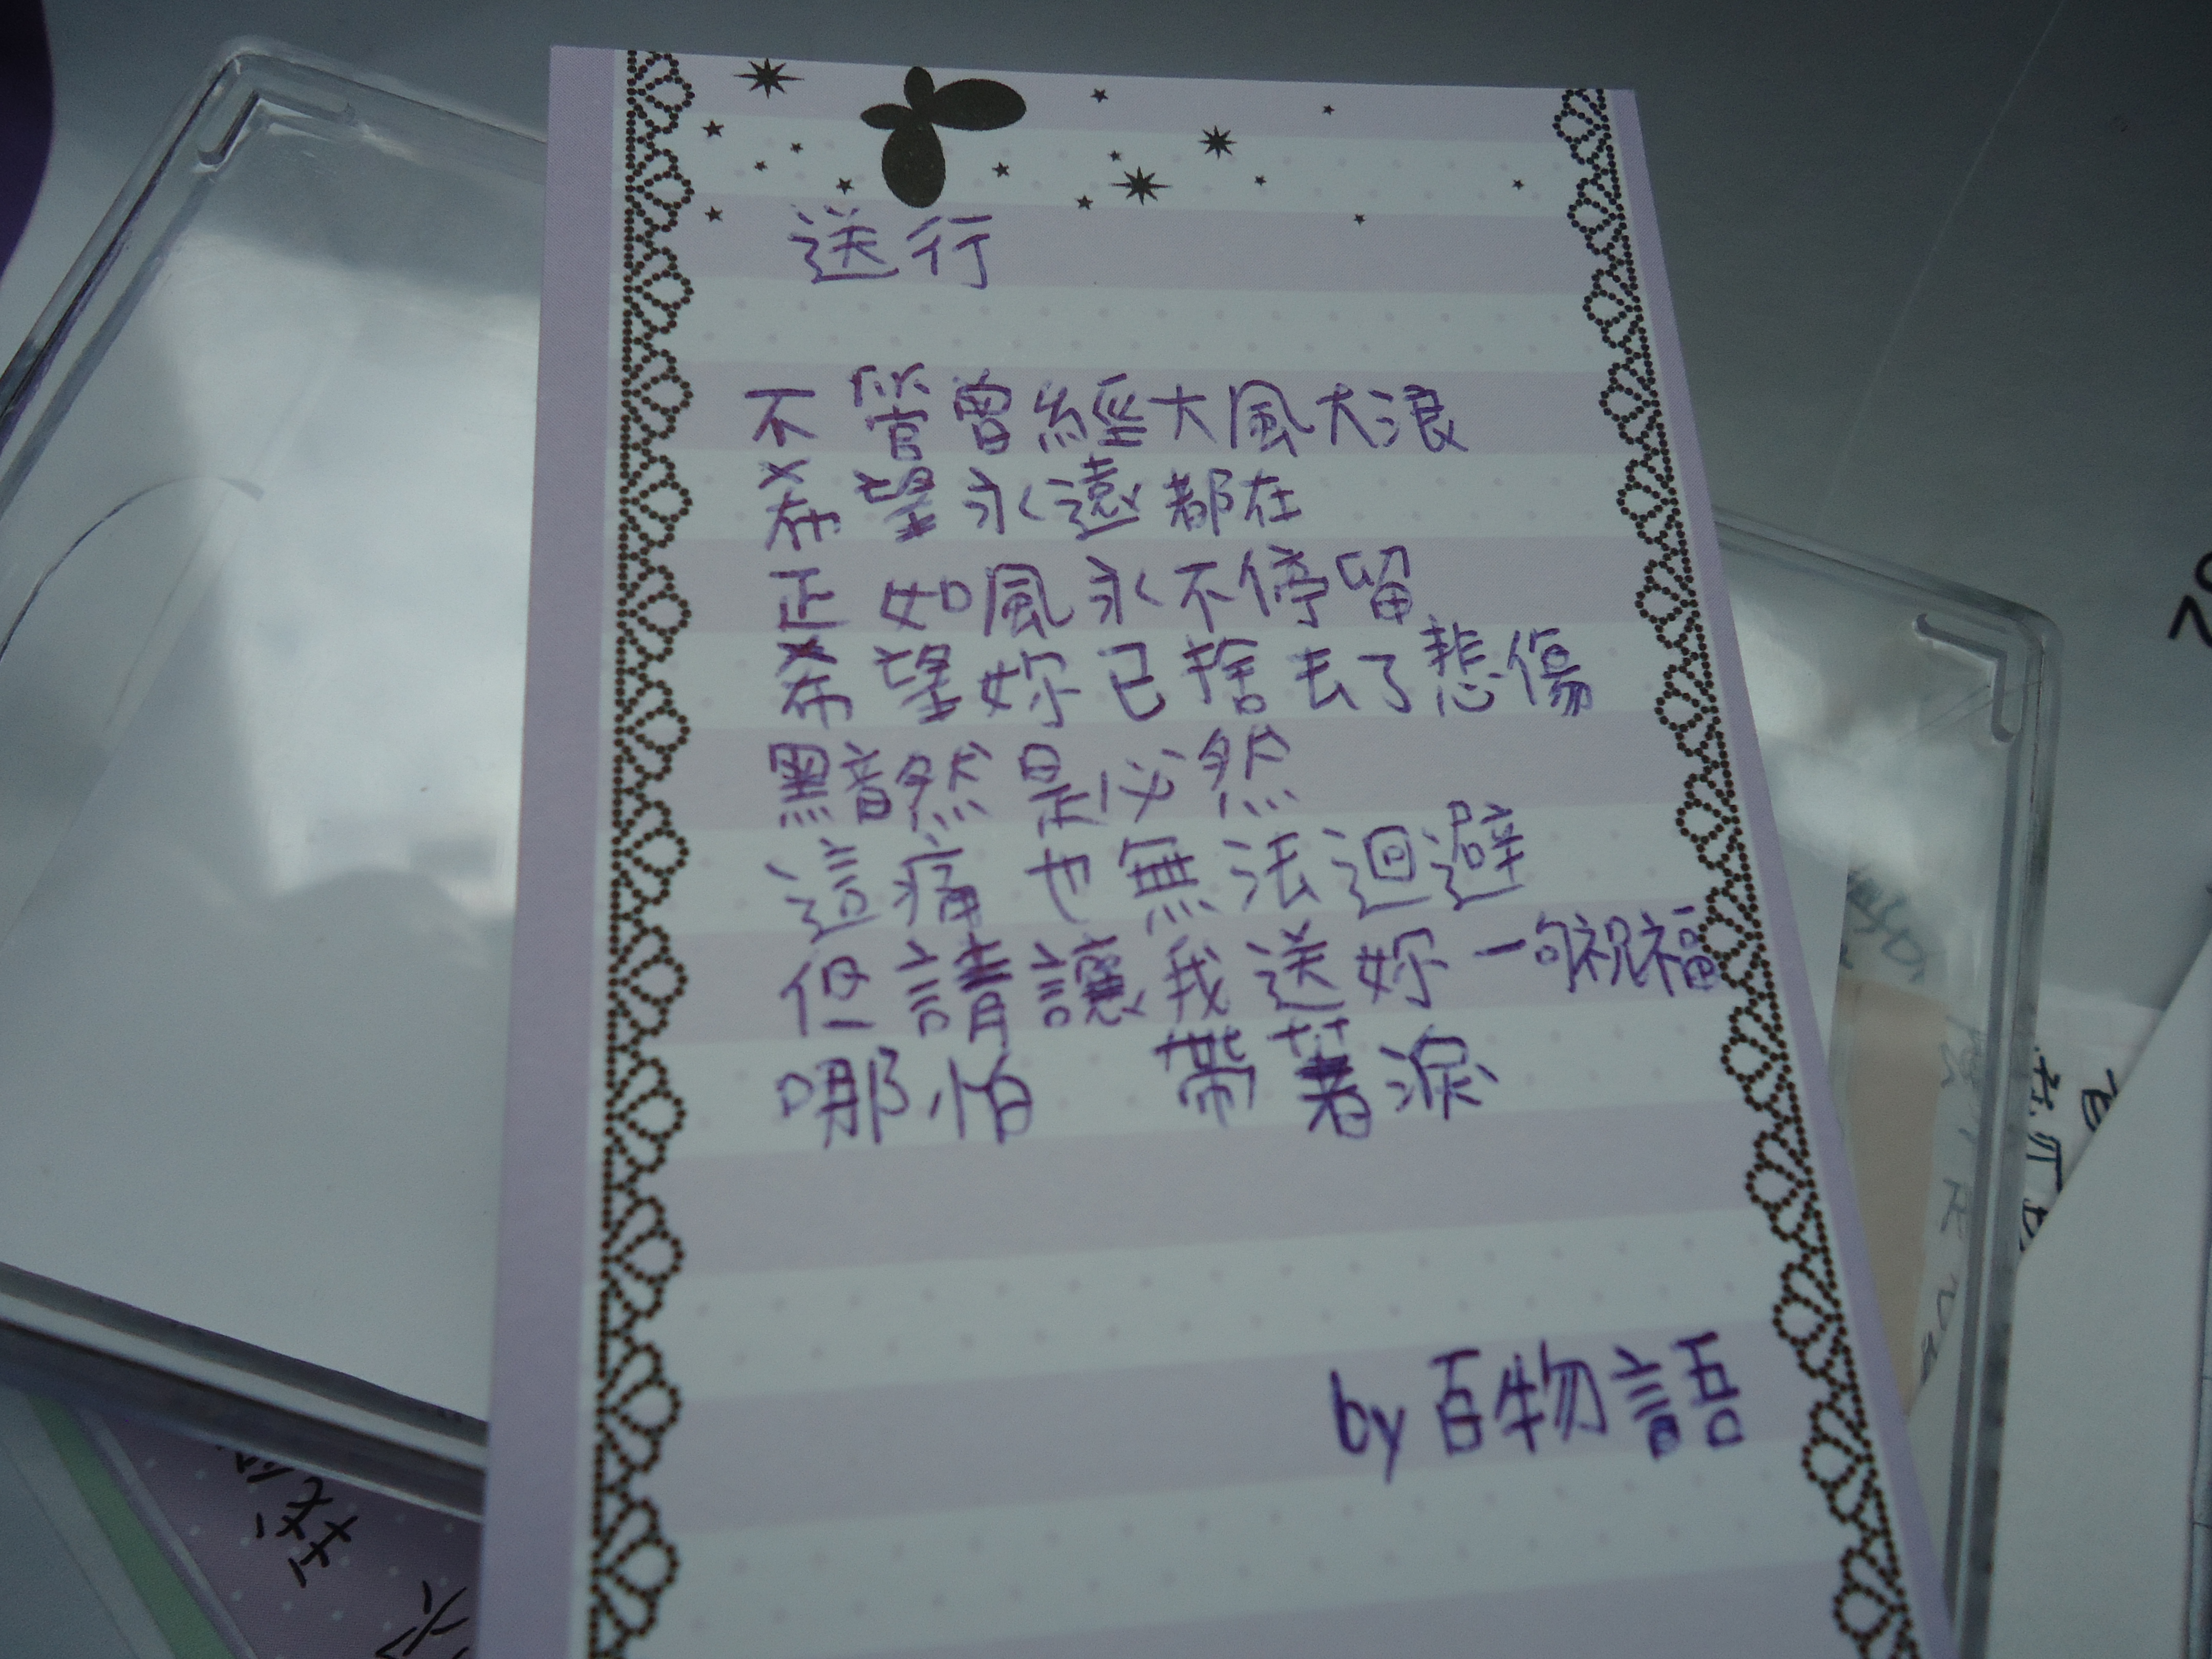 送行
不管曾經大風大浪
希望永遠都在
正如風永不停留
希望妳已捨去了悲傷
黯然是必然
這痛也無法迴避
但請讓我送妳一句祝福
哪怕 帶著淚
by 百物語